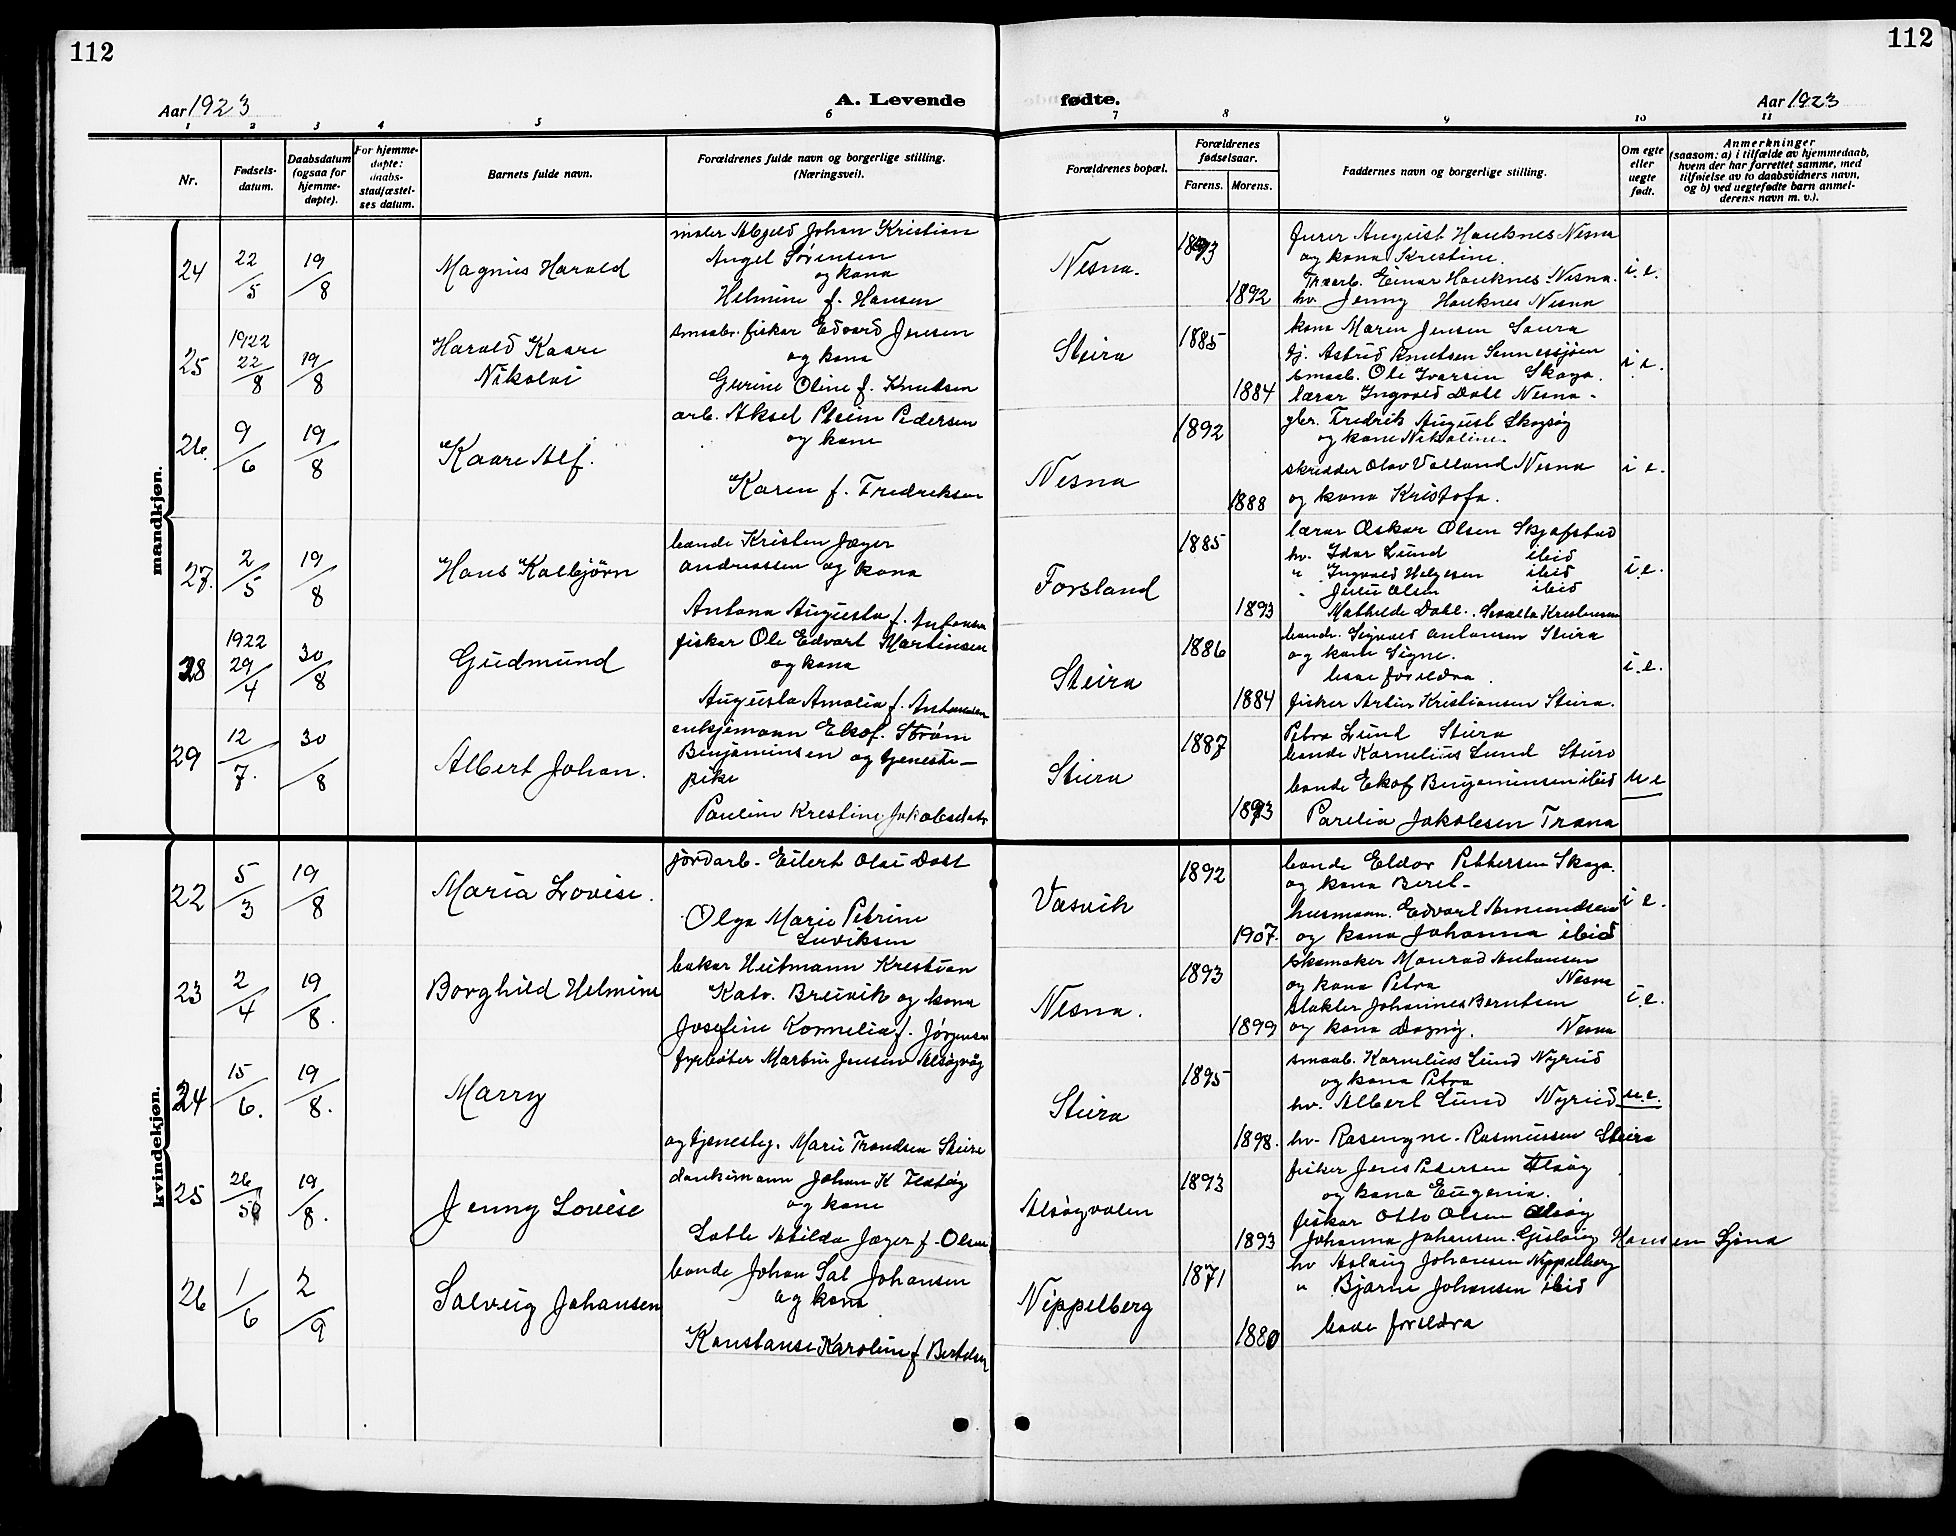 112
112
Aar 1923
A. Levende
fødte.
Aar 1923
1 2 3 4 5 6 7 8 9 10 11
Nr.
Fødsels-
datum.
Daabsdatum
(ogsaa for
hjemme-
døpte).
For hjemme-
døpte:
daabs-
stadfæstel-
ses datum.
Barnets fulde navn.
Forældrenes fulde navn og borgerlige stilling.
(Næringsvei).
Forældrenes bopæl.
Forældrenes
fødselsaar.
Farens. Morens.
Faddernes navn og borgerlige stilling.
Om egte
eller
uegte
født.
Anmerkninger
(saasom: a) i tilfælde av hjemmedaab,
hvem der har forrettet samme, med
tilføielse av to daabsvidners navn,
og b) ved uegtefødte barn anmel-
derens navn m. v.).
mandkjøn.
24
22/5
19/8
Magnus Harald
maler Johan Kristian
Angel Sørensen
og kona
Helmine f. Hansen
Nesna.
1892
August Hauknes Nesna
og kona Kristine.
Einar Hauknes Nesna.
hv. Jenny Hauknes Nesna
i.e.
25
1922
22/8
19/8
Harald Kaare
Nikolai
smaabr. fisker Edvard Jensen
og kona
Gurine Oline f. Knutsen
Steira
1885
1884
kona Maren Jensen Saura
tj. Astrid Knutsen Sennessjøen
smaab. Ole Ivarsen Skaga.
lærar Ingvald Dahl Nesna.
i.e.
26.
9/6
19/8
Kaare Alf.
arb. Aksel Pleim Pedersen
og kone
Karen f. Fredriksen
Nesna
1892
1888
gbr. Fredrik August Skogsøy
og kone Nikoline.
skrædder Olav Valland Nesna
og kona Kristofa.
i e.
27.
2/5
19/8
Hans Kolbjørn
bonde Kristen Jæger
Andreassen og kona
Antona Augusta f. Antonsen
Forsland
1885
1893
lærar Oskar Olsen
hv. Idar Lund ibid
" Ingvald Helgesen ibid
" Julie Olsen ibid
Mathilde Dahl.
i.e.
28
1922
29/4
30/8
Gudmund
fisker Ole Edvart Martinsen
og kona
Augusta Amalia f. Antonsen
Steira
1886
1884
bonde. Sigvald Antonsen Steira
og kone Signe.
baae forældra.
fisker Artur Kristiansen Steira.
i.e.
29
12/7.
30/8
Albert Johan.
enkjemann Elof. Strøm
Benjaminsen og tjeneste-
pike
Pauline Krestine Jakobsdatr
Steira
1887
1893
Petra Lund Steira
bonde Kornelius Lund Steira
bonde Elof Benjaminsen ibid
Parelia Jakobsen Træna
u e
kvindekjøn.
22
5/3
19/8
Maria Lovise.
jordarb. Eilert Olai Dahl
Olga Marie Petrine
Luviksen
Vasvik
1892
1907.
bonde Eldor Pettersen Skaga.
og kona Beret-
husmann. Edvart Amundsen
og kona Johanna ibid
i e.
23
2/4
19/8.
Borghild Helmine
baker Heitmann Krestian
Kato. Breivik og kona
Josefine Kornelia f. Jørgensen
Nesna.
1893
1899
skomaker Monrad Antonsen
og kona Petra Nesna
slakter Johannes Berntsen
og kona Dagny. Nesna
i.e.
24
15/6.
19/8.
Marry
fyrbøter Martin Jensen Alsøyvåg
og tjenestpg. Marie Trondsen Steira
Steira
1895
1898.
smaab. Kornelius Lund Nyrud
og kona Petra
hv. Albert Lund Nyrud
hv. Rasmussen Steira
u.e.
25
26/5
19/8.
Jenny Lovise
Johan K Flatøy
og kone
Lotle Atilda Jæger f. Olsen
Alsøyvalen
1893
1893
fisker Jens Pedersen Alsøy
og kona Eugenia.
fisker Otto Olsen Alsøy
Johanna Johansen. Gisløvig Hansen Sjona
26
1/6
2/9
Solveig Johansen
bonde Johan Sal Johansen
og kona
Konstanse Karoline f Bertelsen
Nippelberg
1871
1880
hv Aslaug Johansen Nippelberg
" Bjarne Johansen ibid
bade forældra